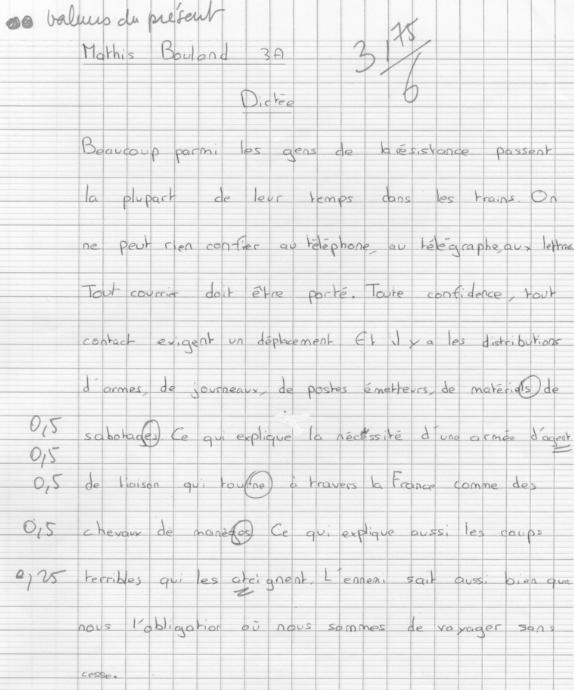 valeurs du présent
Mathis Bouland 3A
3,75/6
Dictée
Beaucoup parmi les gens de la résistance passent
la plupart de leur temps dans les trains. On
ne peut rien confier au téléphone, au télégraphe, aux lettres
Tout courrier doit être porté. Toute confidence, tout
contact exigent un déplacement Et il y a les distributions
d'armes, de journeaux, de postes émetteurs, de matériels de
0,5 sabotages Ce qui explique la nécéssité d'une armée d'agent
0,5
0,5 de liaison qui tourne à travers la France comme des
0,5 chevaux de manèges Ce qui explique aussi les coups
0,25 terribles qui les ateignent. L'ennemi sait aussi bien que
nous l'obligation où nous sommes de voyager sans
cesse.